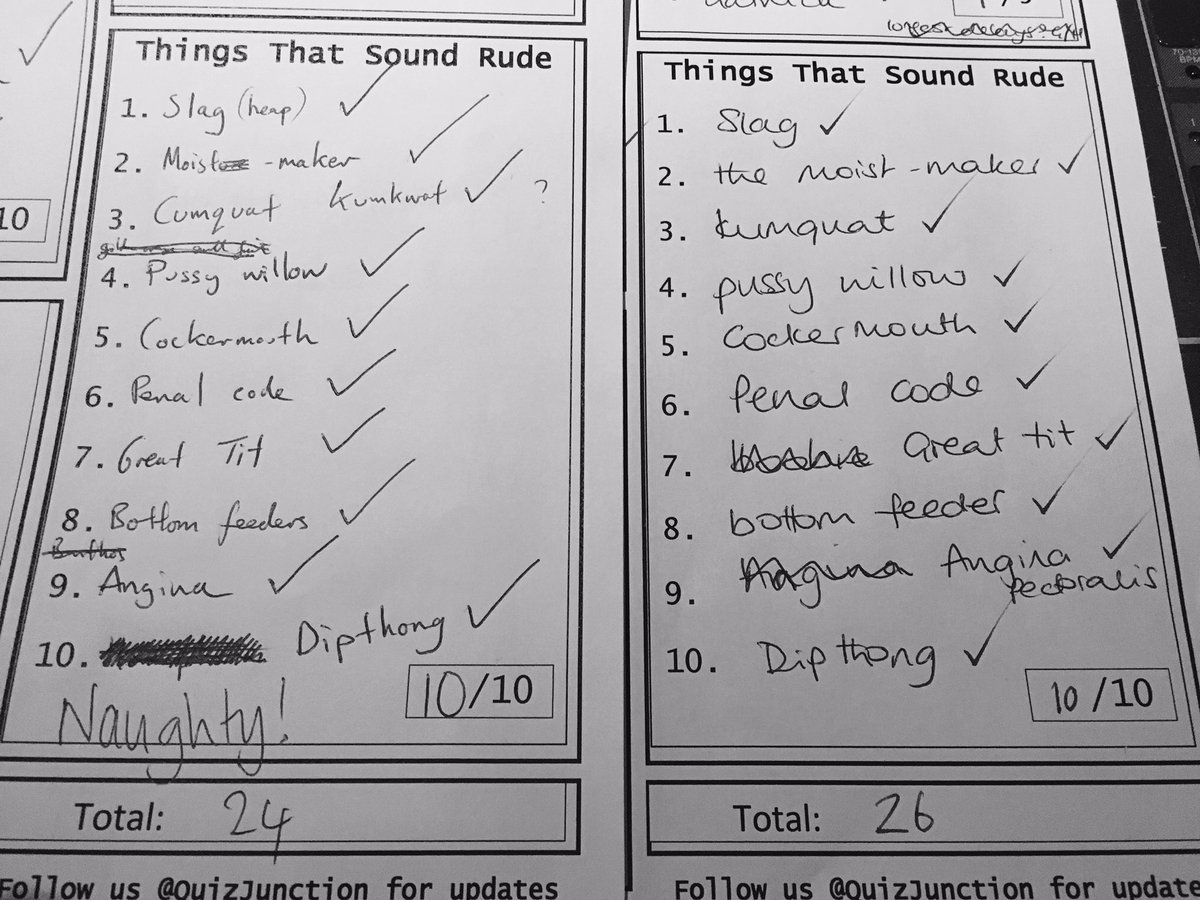 10
Things That Sound Rude
1. Slag (heap)
2. Moist -maker
3. Cumquat kumkwat ?
4. Pussy willow
5. Cockermouth
6. Penal code
7. Great Tit
8. Bottom feeders
9. Angina
10. Dipthong
Naughty!
10/10
Total: 24
Follow us @QuizJunction for updates
Things That Sound Rude
1. Slag
2. the moist-maker
3. kumquat
4. pussy willow
5. Cockermouth
6. Penal code
7. Great tit
8. bottom feeder
9. Angina
pectoralis
10. Dipthong
10/10
Total: 26
Follow us @QuizJunction for update